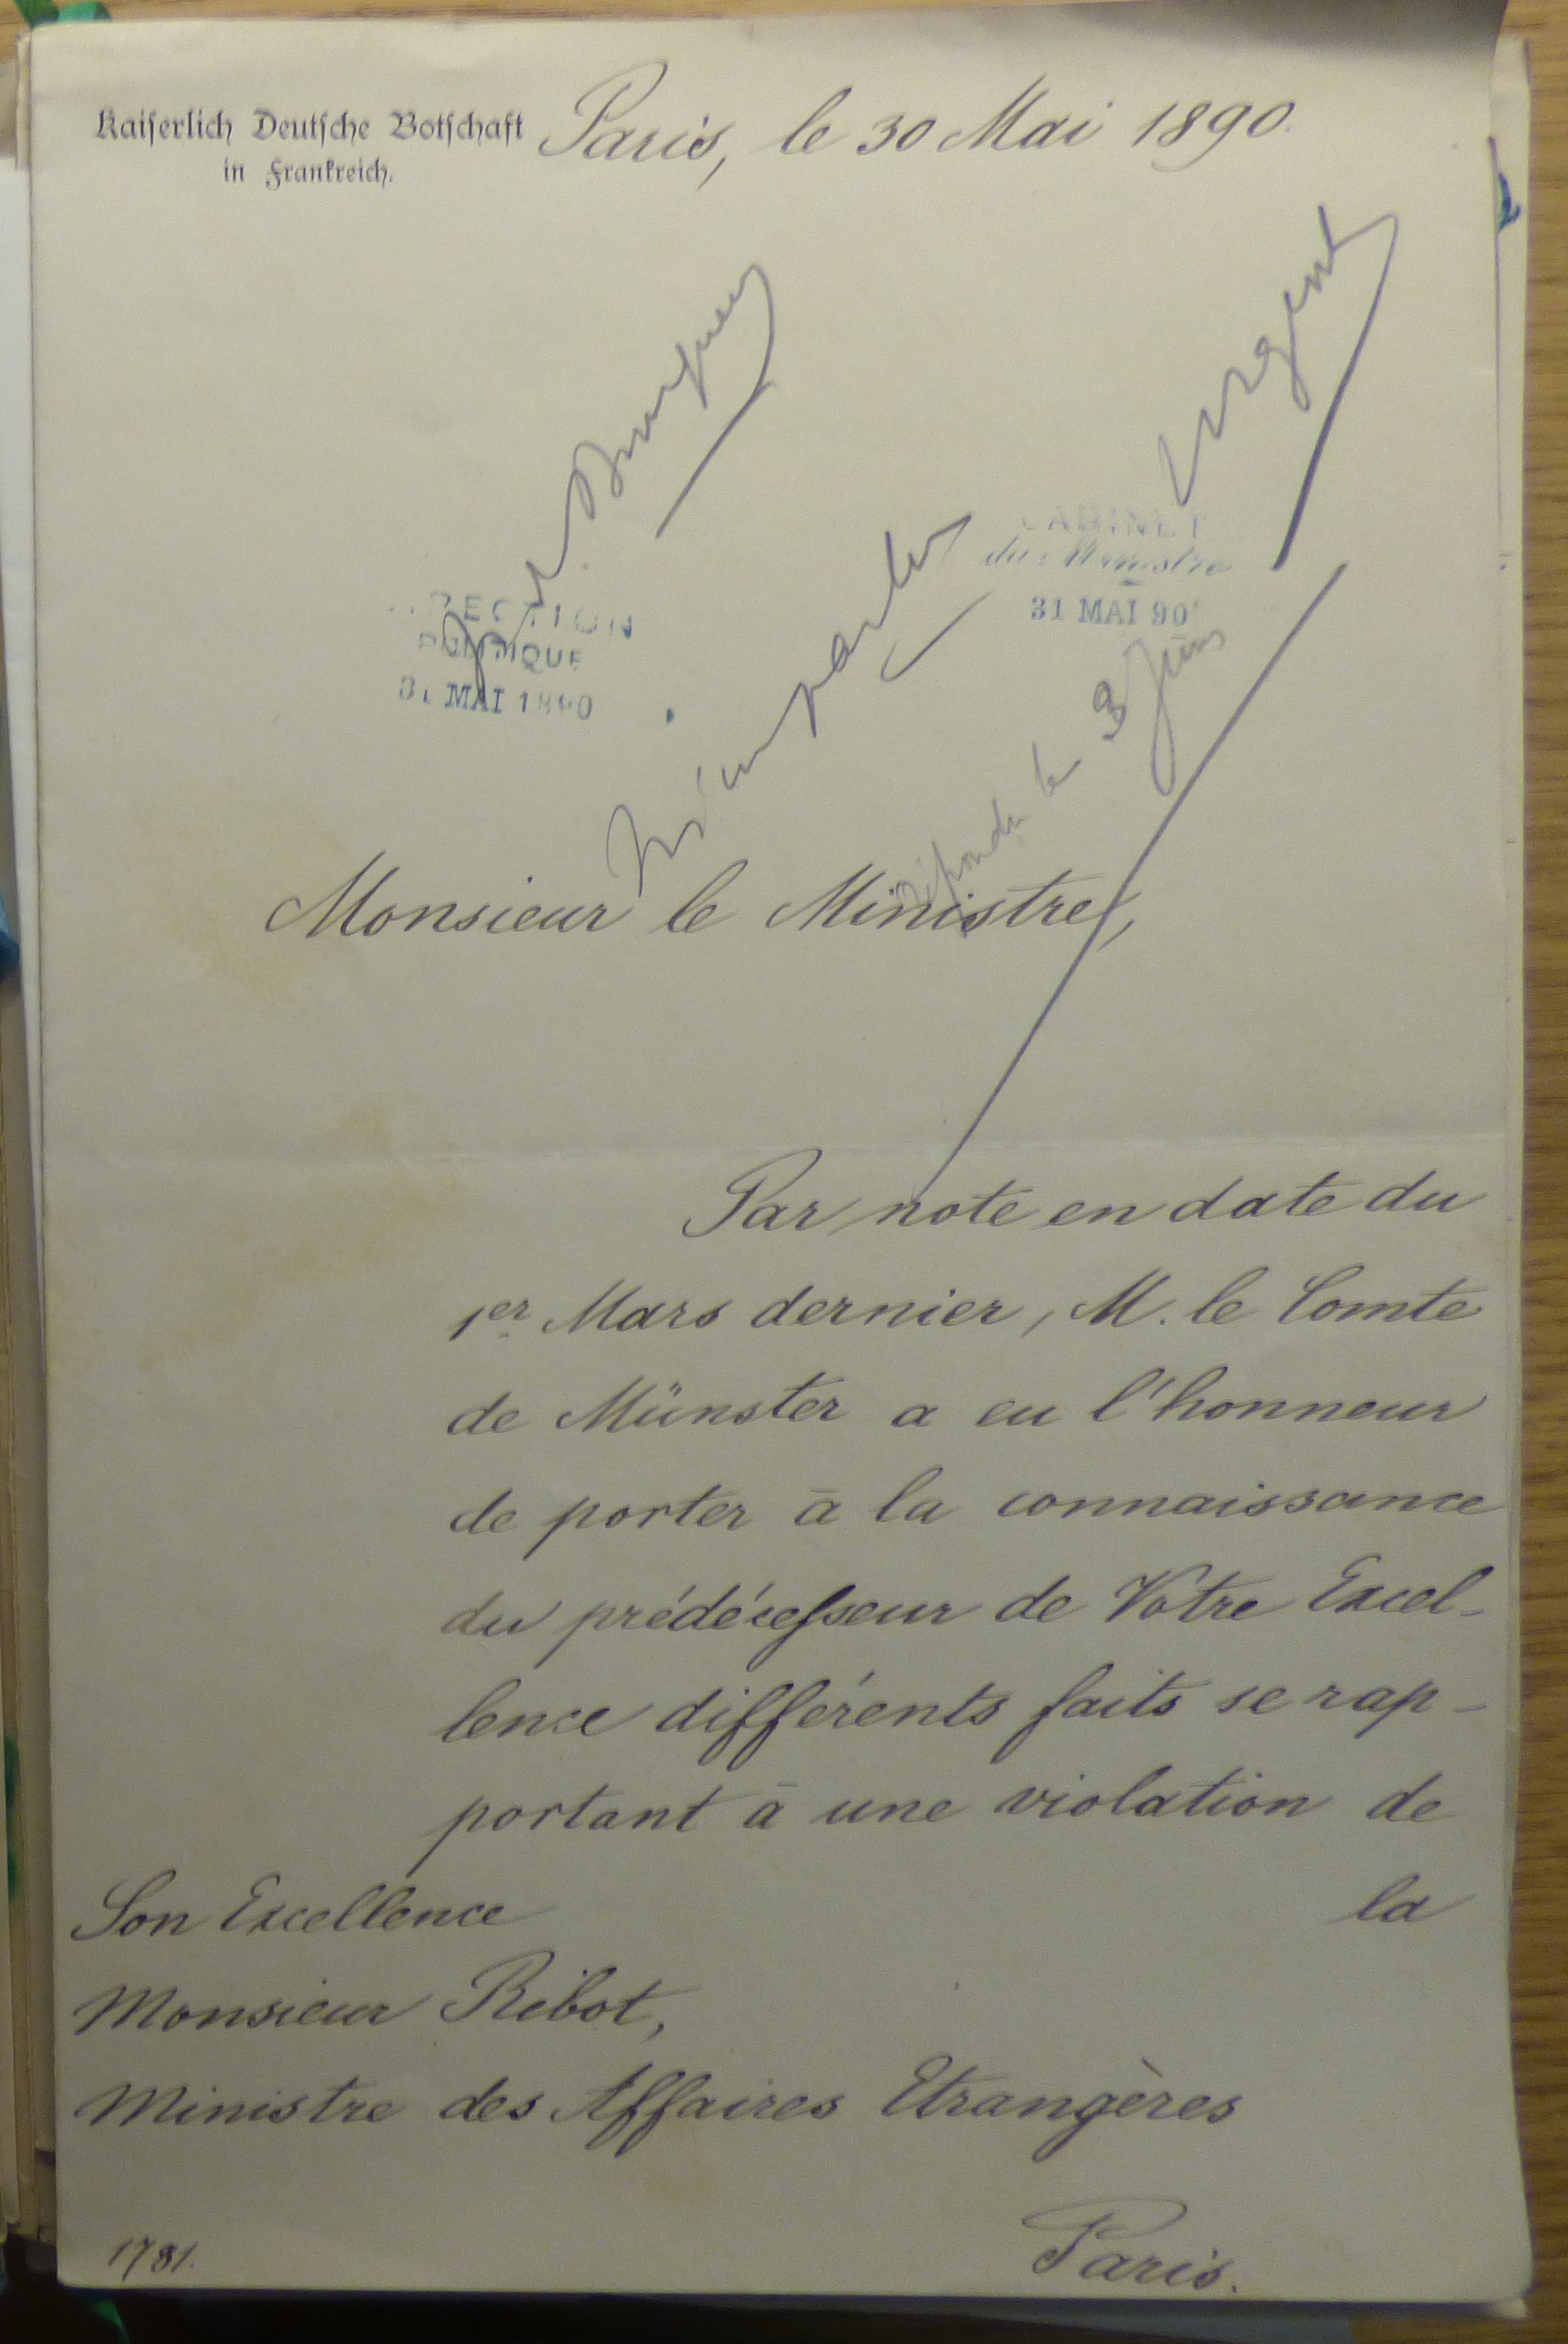 Kaiserlich Deutsche Botschaft
in Frankreich.
Paris, le 30 Mai 1890.
Urgent
CABINET
du Ministre
31 MAI 90
DIRECTION
POLITIQUE
31 MAI 1890
M'en parler
répondu le 3 Juin
Monsieur le Ministre,
Par note en date du
1er Mars dernier, M. le Comte
de Münster a eu l'honneur
de porter à la connaissance
du prédécesseur de Votre Excel-
lence différents faits se rap-
portant à une violation de
la
Son Excellence
Monsieur Ribot,
Ministre des Affaires Etrangères
Paris.
1781.